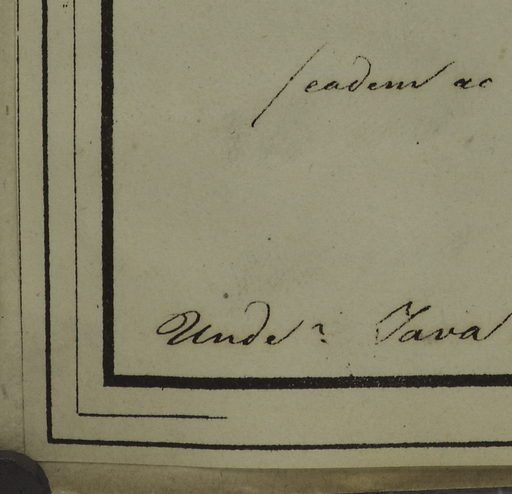 (eadem ac
Unde? Java